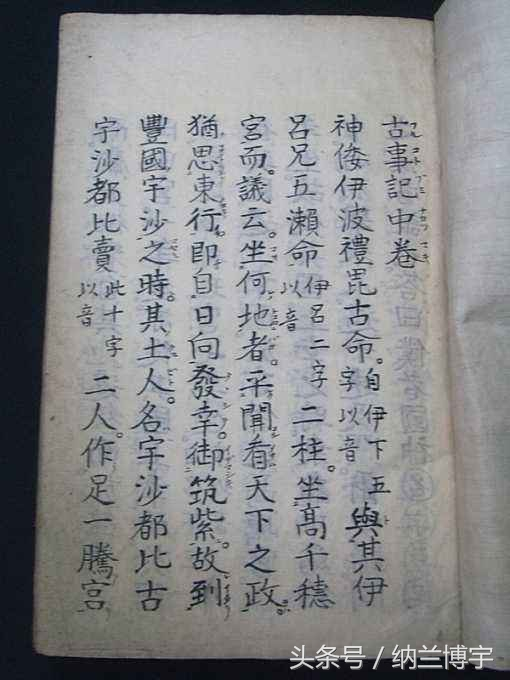 古事記中卷
神倭伊波禮毘古命。自伊下五字以音與其伊
呂兄五瀬命伊呂二字以音二柱。坐高千穗
宮而。議云。坐何地者。平聞看天下之政。
猶思東行。即自日向發幸。御筑紫。故到
豐國宇沙之時。其土人。名宇沙都比古
宇沙都比賣此十字以音二人。作足一騰宮
头条号 / 纳兰博宇